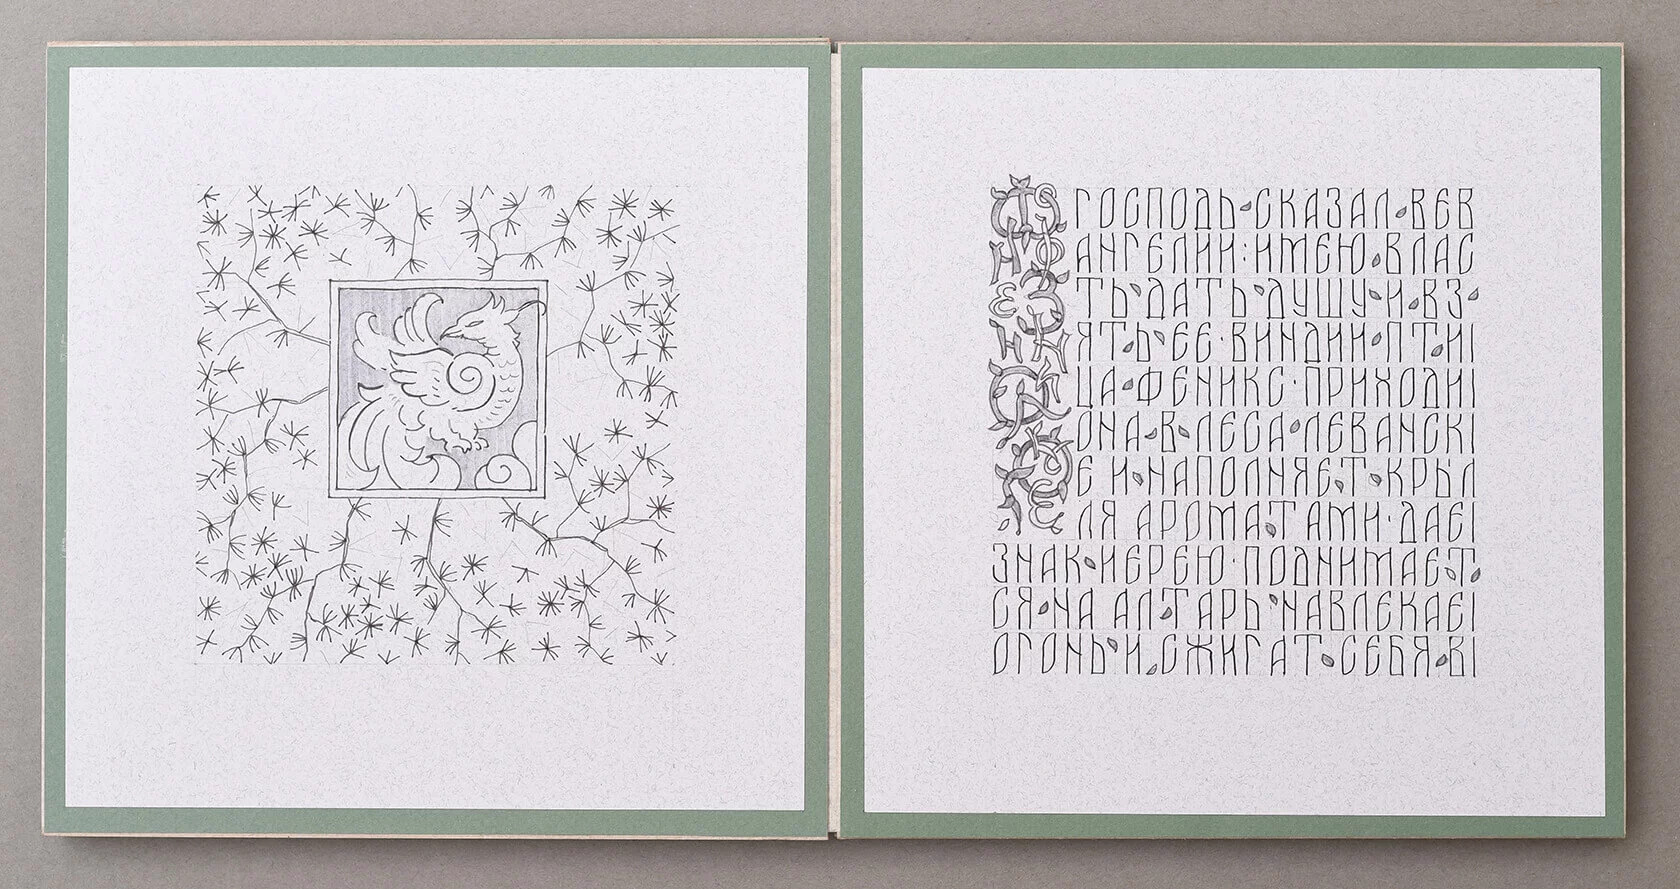 ГОСПОДЬ·СКАЗАЛ·ВЕВ
АНГЕЛИИ:ИМЕЮ·ВЛАС
ТЬ·ДАТЬ·ДУШУ·И·ВЗ·
ЯТЬ·ЕЕ·ВИНДИИ·ПТ·ИІ
ЦА·ФЕНИКС·ПРИХОДИІ
ОНА·В·ЛЕСА·ЛЕВАНСКІ
Е И·НАПОЛНЯЕТ·КРЫЛ
ЛЯ АРОМАТАМИ·ДАЕІ
ЗНАК·ИЕРЕЮ·ПОДНИМАЕТ·
СЯ·НА АЛТАРЬ·НАВЛЕКАЕІ
ОГОНЬ·И·СЖИГАТ·СЕБЯ·ВІ